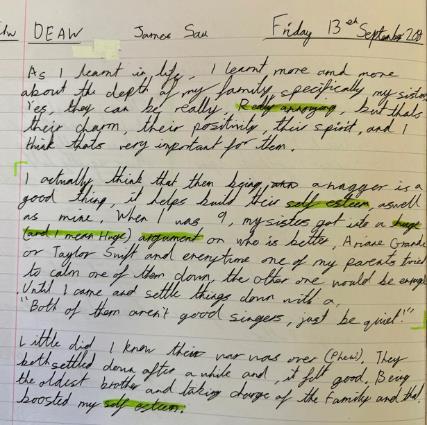 DEAW James Sau Friday 13th September
As I learnt in life, I learnt more and more
about the depth of my family, specifically, my sisters
Yes, they can be really, Really annoying, but thats
their charm, their positivity, their spirit, and I
think thats very important for them.
I actually think that them being a nagger is a
good thing, it helps build their self esteem aswell
as mine. When I was 9, my sisters got into a huge
(and I mean Huge) argument on who is better, Ariane Grande
or Taylor Swift and everytime one of my parents tried
to calm one of them down, the other one would be
Until I came and settle things down with a,
"Both of them aren't good singers, just be quiet!"
Little did I know their war was over (Phew). They
both settled down after a while and, it felt good, Being
the oldest brother and taking charge of the Family and that
boosted my self esteem.